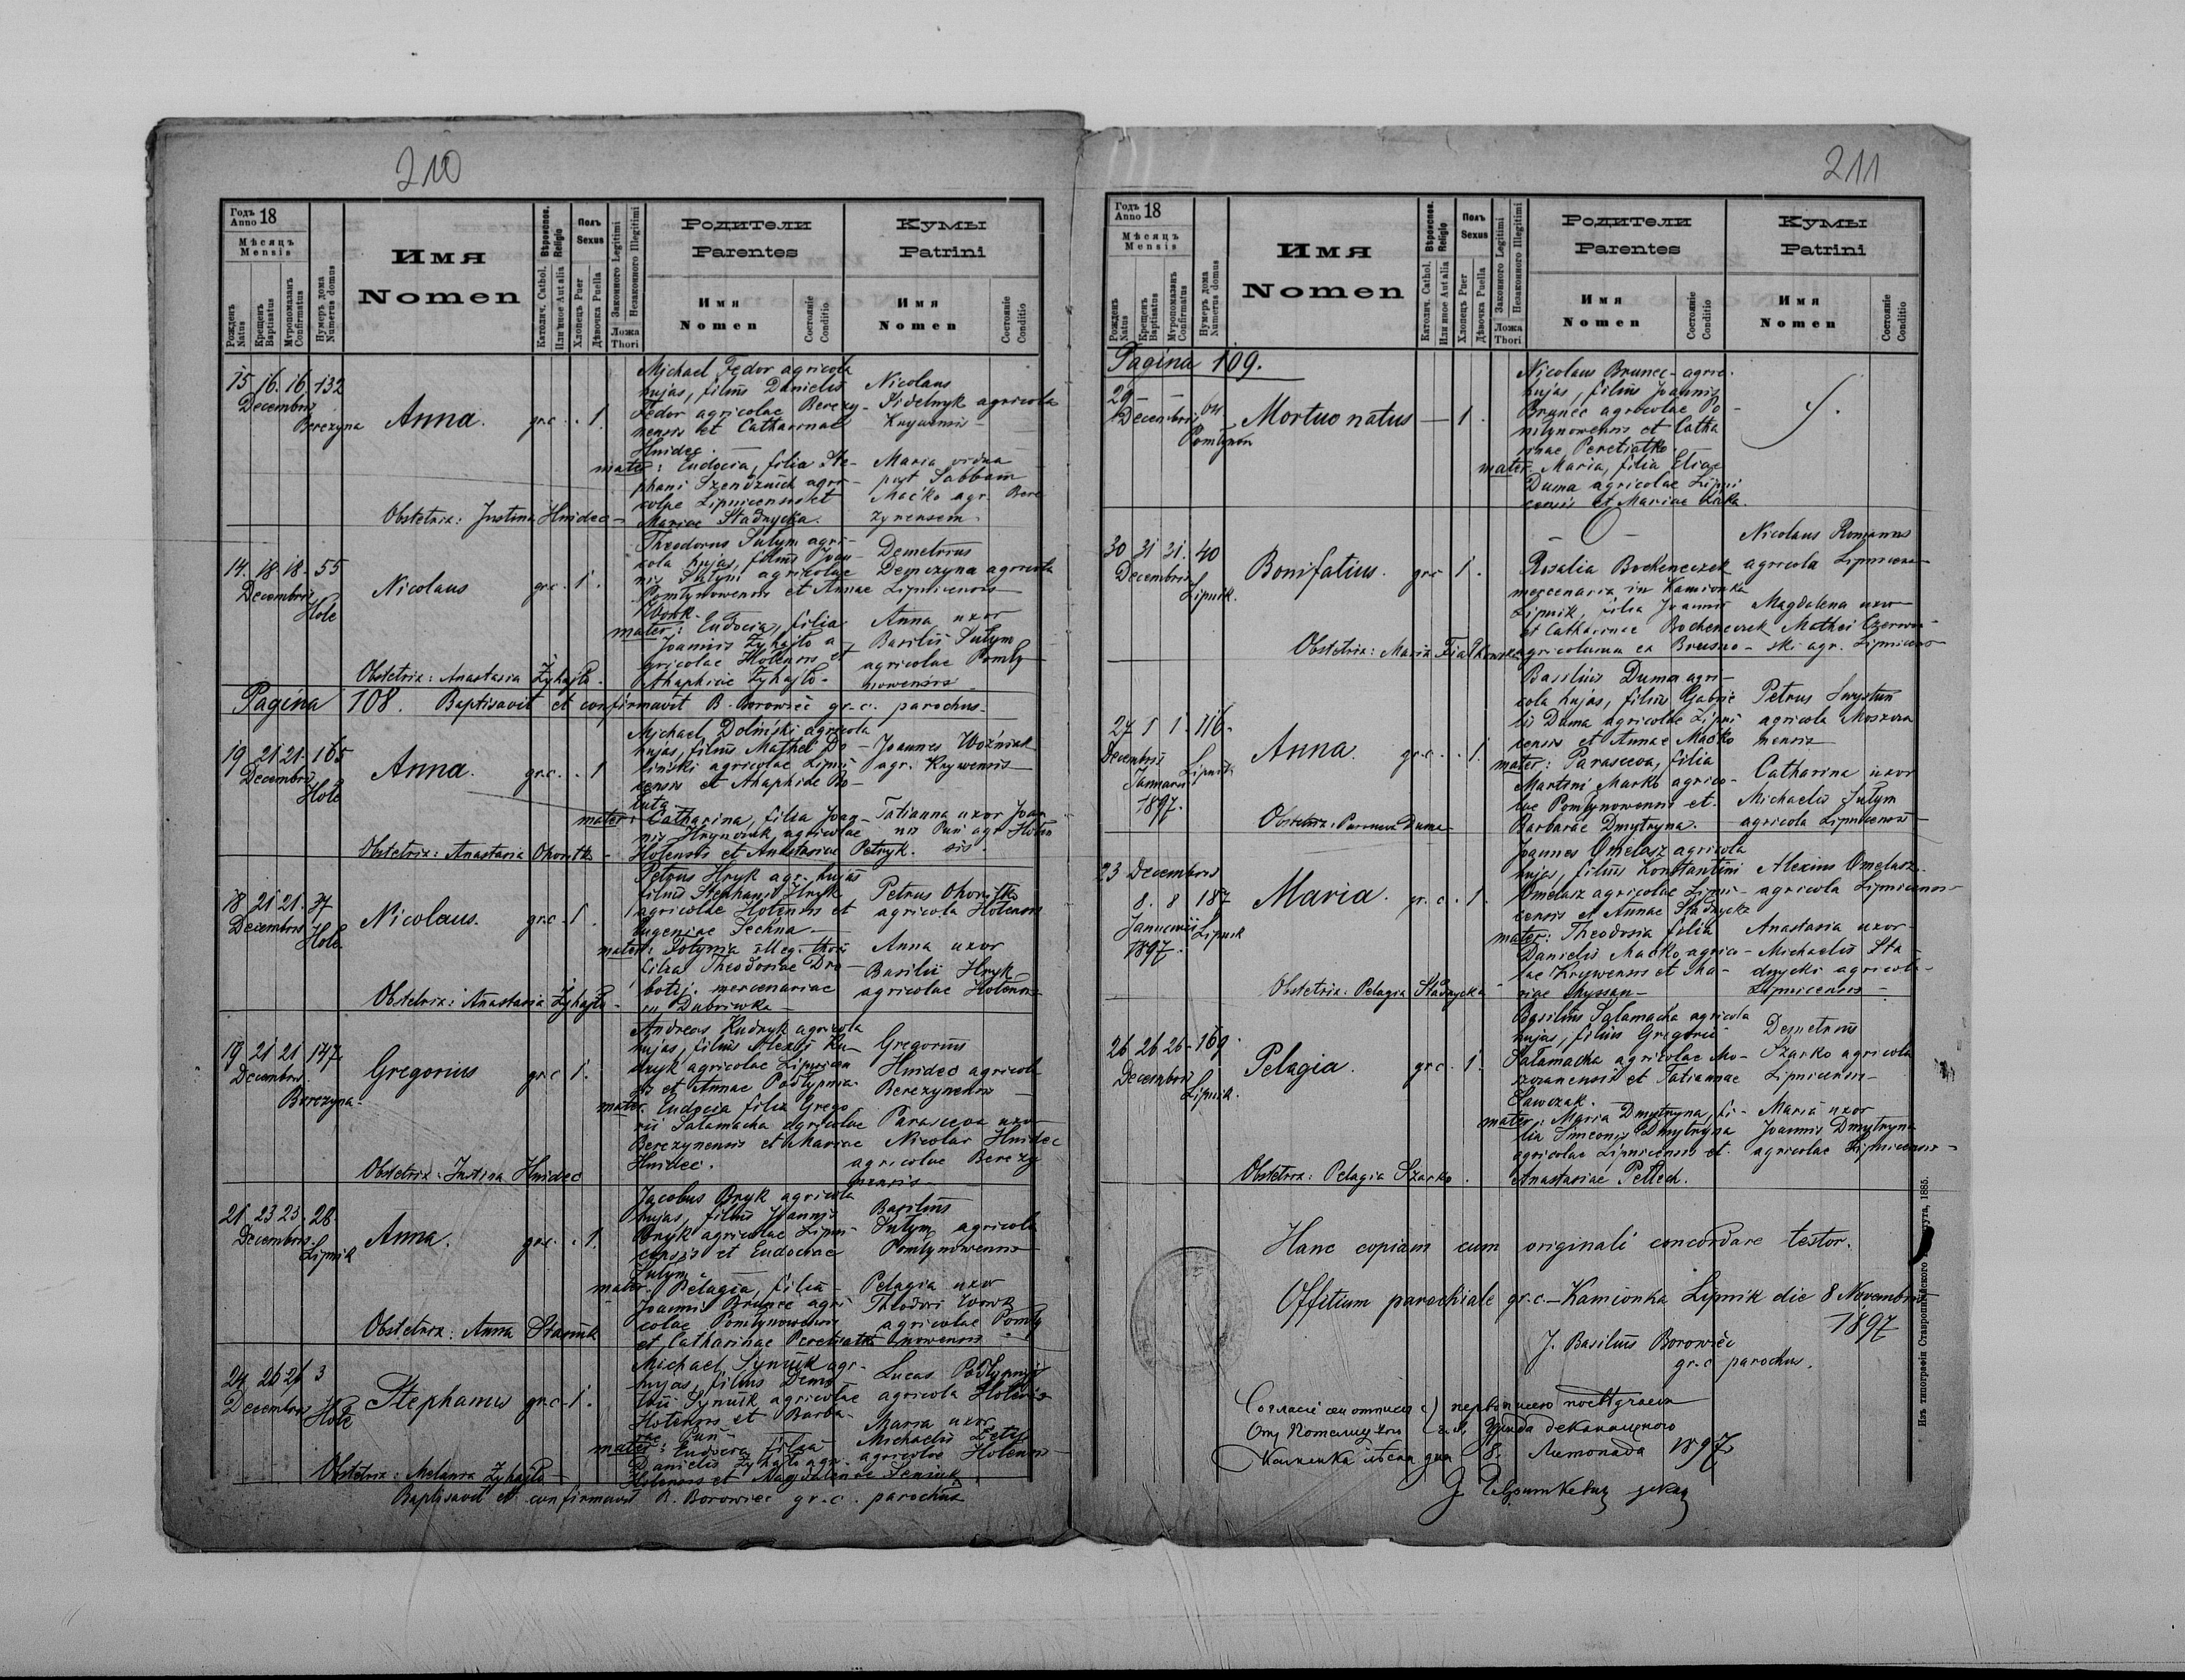 210
Годъ Anno 18
Мѣсяцъ
Mensis
Рожденъ Natus
Крещенъ Baptisatus
Мѵропомазанъ Confirmatus
Нумеръ дома Numerus domus
Имя
Nomen
Католич. Cathol. Вѣроиспов.
Или иное Aut alia Religio
Полъ
Sexus
Хлопецъ Puer
Дѣвочка Puella
Законного Legitimi
Незаконного Illegitimi
Ложа
Thori
Родители
Parentes
Имя
Nomen
Состояніе
Conditio
Кумы
Patrini
Имя
Nomen
Состояніе
Conditio
15 16. 16. 132
Decembris
Berezyna
Anna. gr.c. . 1.
Michael Fedor agricola
hujas, filius Danielis
Fedor agricolae Berezy-
nensis et Catharinae
Hnidec.
mater: Eudocia, filia Ste-
phani Szendziuch agri-
colae Lipnicensis et
Mariae Stadnycka.
Nicolaus
Sidelnyk agricola
Krywensis
Maria vidua
post Sabbam
Maćko agr. Bere
zynensem.
Obstetrix: Justina Hnidec
14. 18. 18. 55
Decembris
Hole
Nicolaus gr.c. 1.
Theodorus Sulym agri-
cola hujas, filius Joan-
nis Sulym agricolae
Pomlynowensis et Annae
Wowk.
mater: Eudocia, filia
Joannis Zyhajło a-
gricolae Holensis et
Ahaphiae Zyhajło.
Demetrius
Demczyna agricola
Lipnicensis
Anna uxor
Basilii Sulym
agricolae Pomły
nowensis
Obstetrix: Anastasia Zyhajło.
Pagina 108. Baptisavit et confirmavit B. Borowiec gr.c. parochus.
19 21 21. 165
Decembris
Hole
Anna. gr.c. . 1
Michael Doliński agricola
hujas, filius Mathei Do-
liński agricolae Lipni
censis et Ahaphiae Bo-
luta
mater: Catharina, filia Joan-
nis Hrynowek agricolae
Holensis et Anastasiae Petryk.
Joannes Woźniak
agr. Krywensis
Tatianna uxor Joan
nis Puń agr. Holen
sis.
Obstetrix: Anastasia Ohonitko
18 21 21. 37
Decembris
Hole
Nicolaus. gr.c. 1.
Petrus Hryk agr. hujas
filius Stephani Hryk
agricolae Holensis et
Eugeniae Sechna
mater: Fotynia illeg. thori
filia Theodosiae Dro-
botij. mercenariae
in Dubriwka
Petrus Ohonitko
agricola Holensis
Anna uxor
Basilii Hryk
agricolae Holensis
Obstetrix: Anastasia Zyhajło
19 21 21 147
Decembris
Berezyna.
Gregorius gr.c 1.
Andreas Kudryk agricola
hujas, filius Alexii Ku-
dryk agricolae Lipnicen
sis et Annae Podłypnia.
mater. Eudocia filia Grego
rii Salamacha agricolae
Berezynensis et Mariae
Hnidec.
Gregorius
Hnidec agricola
Berezynensis
Parasceva uxor
Nicolai Hnidec
agricolae Berezy
nensis
Obstetrix: Justina Hnidec
21. 23 23. 28
Decembris.
Lipnik
Anna. gr.c. . 1.
Jacobus Bryk agricola
hujas, filius Joannis
Bryk agricolae Lipni
censis et Eudociae
Sulym.
mater. Pelagia, filia
Joannis Brunec agri
colae Pomłynowensis
et Catharinae Peretiatko
Basilius
Sulym agricola
Pomłynowensis
Pelagia uxor
Theodori Wowk
agricolae Pomły
nowensis
Obstetrix: Anna
24 26 26 3
Decembris
Hole
Stephanus gr.c. 1.
Michael Syniuk agr.
hujas, filius Deme
trii Syniuk agricolae
Holensis et Barba-
rae Puń
mater: Eudocia filia
Danielis Zyhajło agr.
Holensis et Magdalenae Seniuk
Lucas Podłypnij
agricola Holensis
Maria uxor
Michaelis
agricolae Holensis
Obstetrix: Melania Zyhajło
Baptisavit et confirmavit B. Borowiec gr.c. parochus
211
Годъ Anno 18
Мѣсяцъ
Mensis
Рожденъ Natus
Крещенъ Baptisatus
Мѵропомазанъ Confirmatus
Нумеръ дома Numerus domus
Имя
Nomen
Католич. Cathol. Вѣроиспов.
Или иное Aut alia Religio
Полъ
Sexus
Хлопецъ Puer
Дѣвочка Puella
Законного Legitimi
Незаконного Illegitimi
Ложа
Thori
Родители
Parentes
Имя
Nomen
Состояніе
Conditio
Кумы
Patrini
Имя
Nomen
Состояніе
Conditio
Pagina 109.
29 – –
Decembris
Pomłynow
Mortuo natus — 1.
Nicolaus Brunec agric.
hujas, filius Joannis
Brunec agricolae Po
młynowensis et Catha
rinae Peretiatko.
mater. Maria, filia Eliae
Duma agricolae Lipni
censis et Mariae
30 31 31. 40
Decembris
Lipnik.
Bonifatius. gr.c 1.
Rosalia Bocheneczek
mercenaria in Kamionka
Lipnik, filia Joannis
et Catharinae Bocheneczek
agricolarum ex Brusno
Nicolaus Romanus
agricola Lipnicensis
Magdalena uxor
Mathei Czerwin
ski agr. Lipnicensis
Obstetrix: Maria Fiałkowska
27 1 1. 116.
Decembris
Januarii Lipnik
1897.
Anna. gr.c. . 1.
Basilius Duma agri-
cola hujas, filius Gabrie
lis Duma agricolae Lipni
censis et Annae Maćko
mater: Parasceva, filia
Martini Marko agrico-
lae Pomłynowensis et
Barbarae Dmytryna.
Petrus Swystun
agricola Moszcza
nensis
Catharina uxor
Michaelis Sulym
agricola Lipnicensis
Obstetrix: Parasceva Duma
23 Decembris
8. 8 187
Januarii Lipnik
1897.
Maria. gr. c. . 1.
Joannes Omelasz agricola
hujas, filius Konstantini
Omelasz agricolae Lipni-
censis et Annae Stadnycka
mater: Theodosia filia
Danielis Maćko agrico-
lae Krywensis et Ma-
riae
Alexius Omelasz
agricola Lipnicensis
Anastasia uxor
Michaelis Sta
dnycki agricolae
Lipnicensis
Obstetrix: Pelagia Stadnycka
26 26 26. 169.
Decembris
Lipnik.
Pelagia. gr.c. 1.
Basilius Salamacha agricola
hujas, filius Gregorii
Salamacha agricolae Mo-
szczanensis et Tatianae
Sawczak.
mater: Maria Dmytryna, fi-
lia Simeonis Dmytryna
agricolae Lipnicensis et
Anastasiae Pellech.
Demetrius
Szarko agricola
Lipnicensis
Maria uxor
Joannis Dmytryna
agricolae Lipnicensis
Obstetrix: Pelagia Szarko.
Hanc copiam cum originali concordare testor.
Offitium parochiale gr.c. Kamionka Lipnik die 8 Novembris
1897
J. Basilius Borowiec
gr.c parochus.
8. Листопада 1897
Изъ типографіи Ставропигійского Института, 1885.